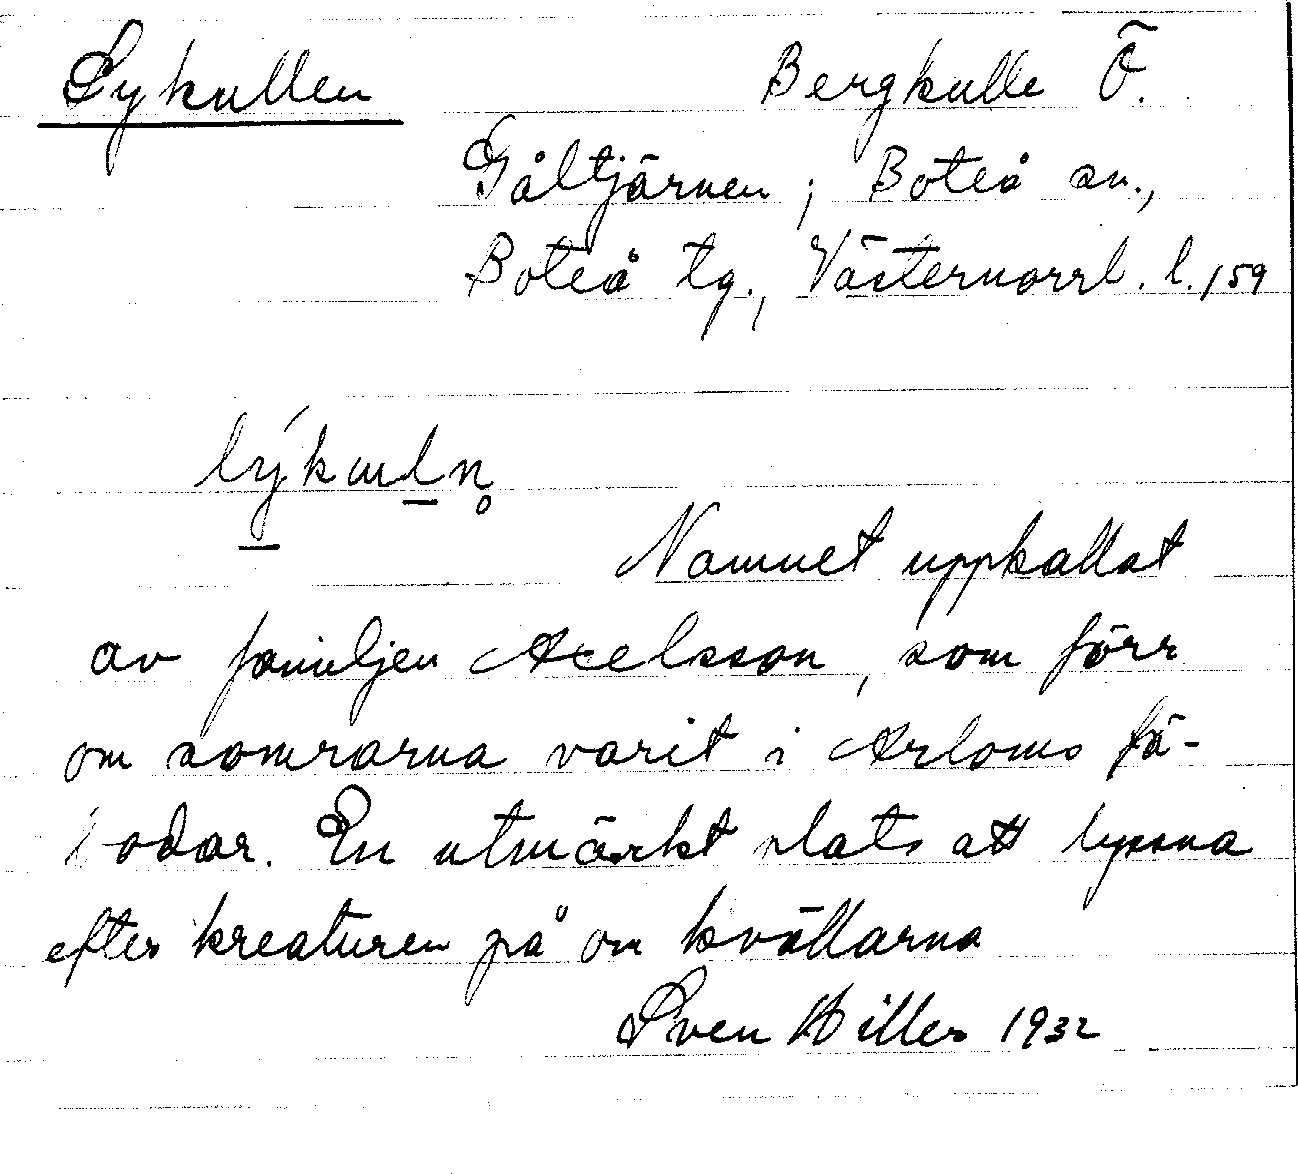 Lykullen Bergkulle Ö.
Gåltjärnen; Boteå sn.,
Boteå tg., Västernorrl. l. 159
lýkuln̥
Namnet uppkallat
av familjen Axelsson, som förr
om somrarna varit i Arloms fä-
bodar. En utmärkt plats att lyssna
efter kreaturen på om kvällarna
Sven Hiller 1932